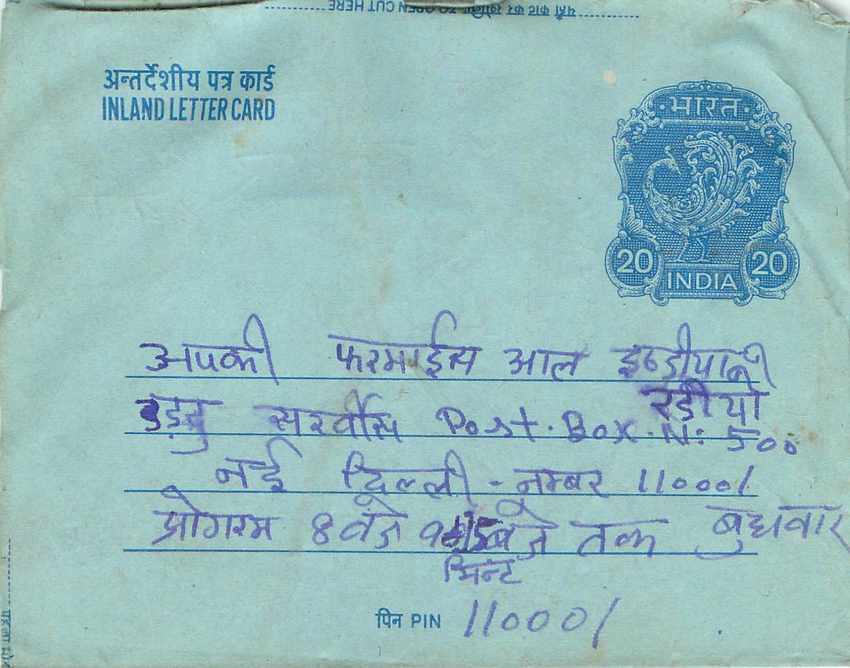 यहाँ काट कर खोलिए TO OPEN CUT HERE
अन्तर्देशीय पत्र कार्ड
INLAND LETTER CARD
भारत
20 20
INDIA
अपकी फरमाईस आल इण्डीया
रेडीयो
उड़दु सरवीस Post.Box.N: 500
नई दिल्ली - नम्बर 110001
प्रोगरम 8 वजे 9 15 बजे तक बुधवार
मिन्ट
पिन PIN 110001